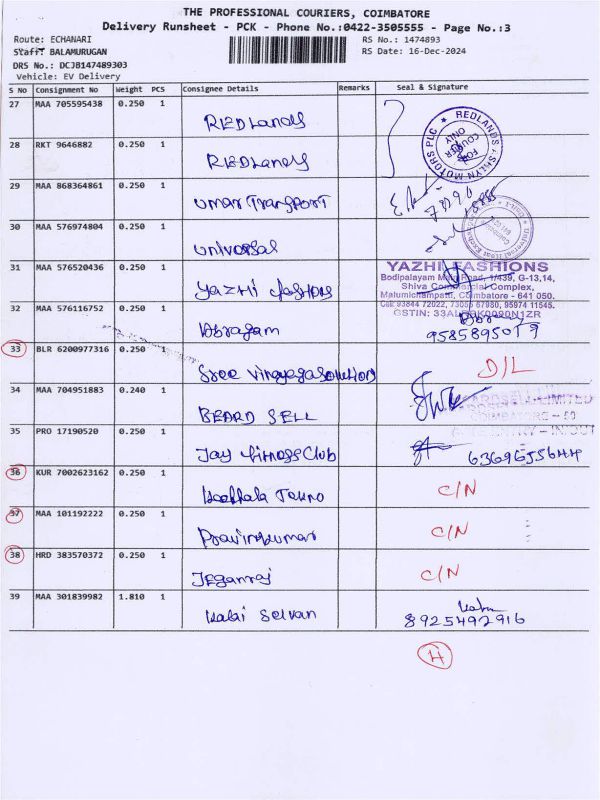 THE PROFESSIONAL COURIERS, COIMBATORE
Delivery Runsheet - PCK - Phone No.:0422-3505555 - Page No.:3
Route: ECHANARI
RS No.: 1474893
Staff: BALAMURUGAN
RS Date: 16-Dec-2024
DRS No.: DCJB147489303
Vehicle: EV Delivery
S No Consignment No Weight PCS Consignee Details Remarks Seal & Signature
27 MAA 705595438 0.250 1
REDLANDS
28 RKT 9646882 0.250 1
REDLANDS
REDLANDS ASHLYN MOTORS PLC
FOR COURIER ONLY
29 MAA 868364861 0.250 1
Umar Transport
30 MAA 576974804 0.250 1
Universal
31 MAA 576520436 0.250 1
Yazhi Fashions
YAZHI FASHIONS
Bodipalayam Main Road, 1/439, G-13,14,
Shiva Commercial Complex,
Malumichampatti, Coimbatore - 641 050.
32 MAA 576116752 0.250 1
9585895019
33 BLR 6200977316 0.250 1
Sree Vinayaga Solution D/L
34 MAA 704951883 0.240 1
BEARD SELL
35 PRO 17190520 0.250 1
Jay Fitness Club
36 KUR 7002623162 0.250 1
C/N
37 MAA 101192222 0.250 1
Pravinkumar C/N
38 HRD 383570372 0.250 1
Jeganraj C/N
39 MAA 301839982 1.810 1
Kalai Selvan 8925492916